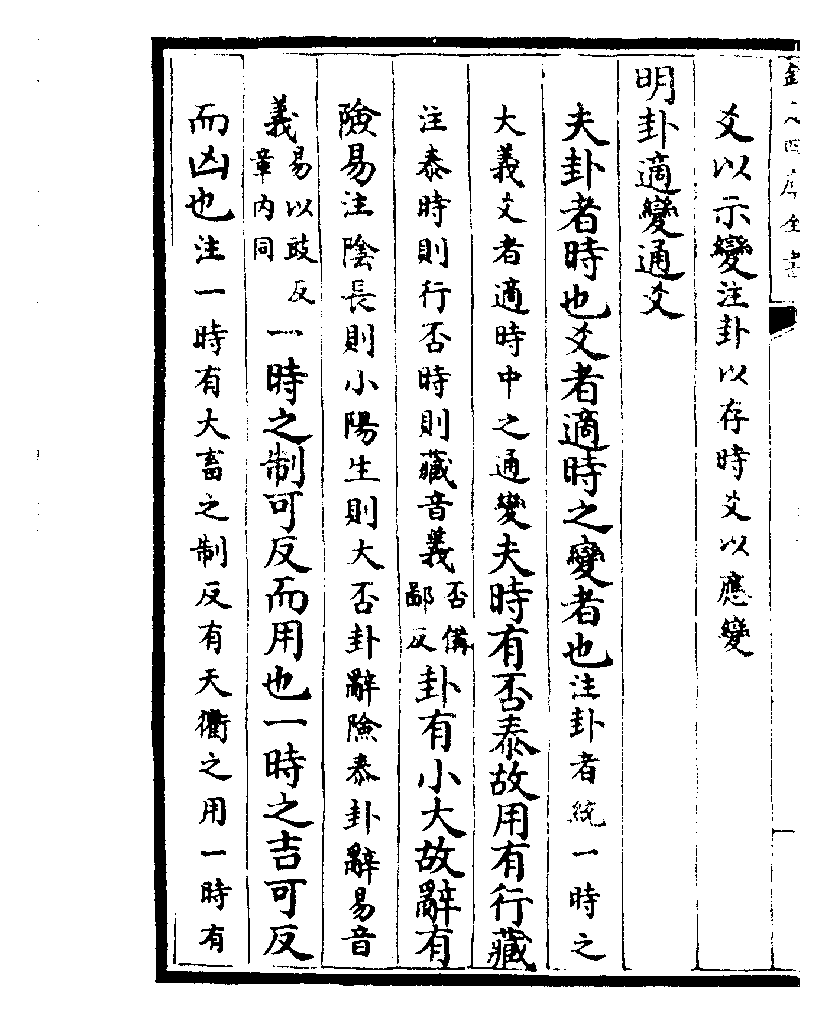 欽定四庫全書
爻以示變注卦以存時爻以應變
明卦適變通爻
夫卦者時也爻者適時之變者也注卦者統一時之
大義爻者適時中之通變夫時有否泰故用有行藏
注泰時則行否時則藏音義否備鄙反卦有小大故辭有
險易注陰長則小陽生則大否卦辭險泰卦辭易音
義易以豉反章內同一時之制可反而用也一時之吉可反
而凶也注一時有大畜之制反有天衢之用一時有